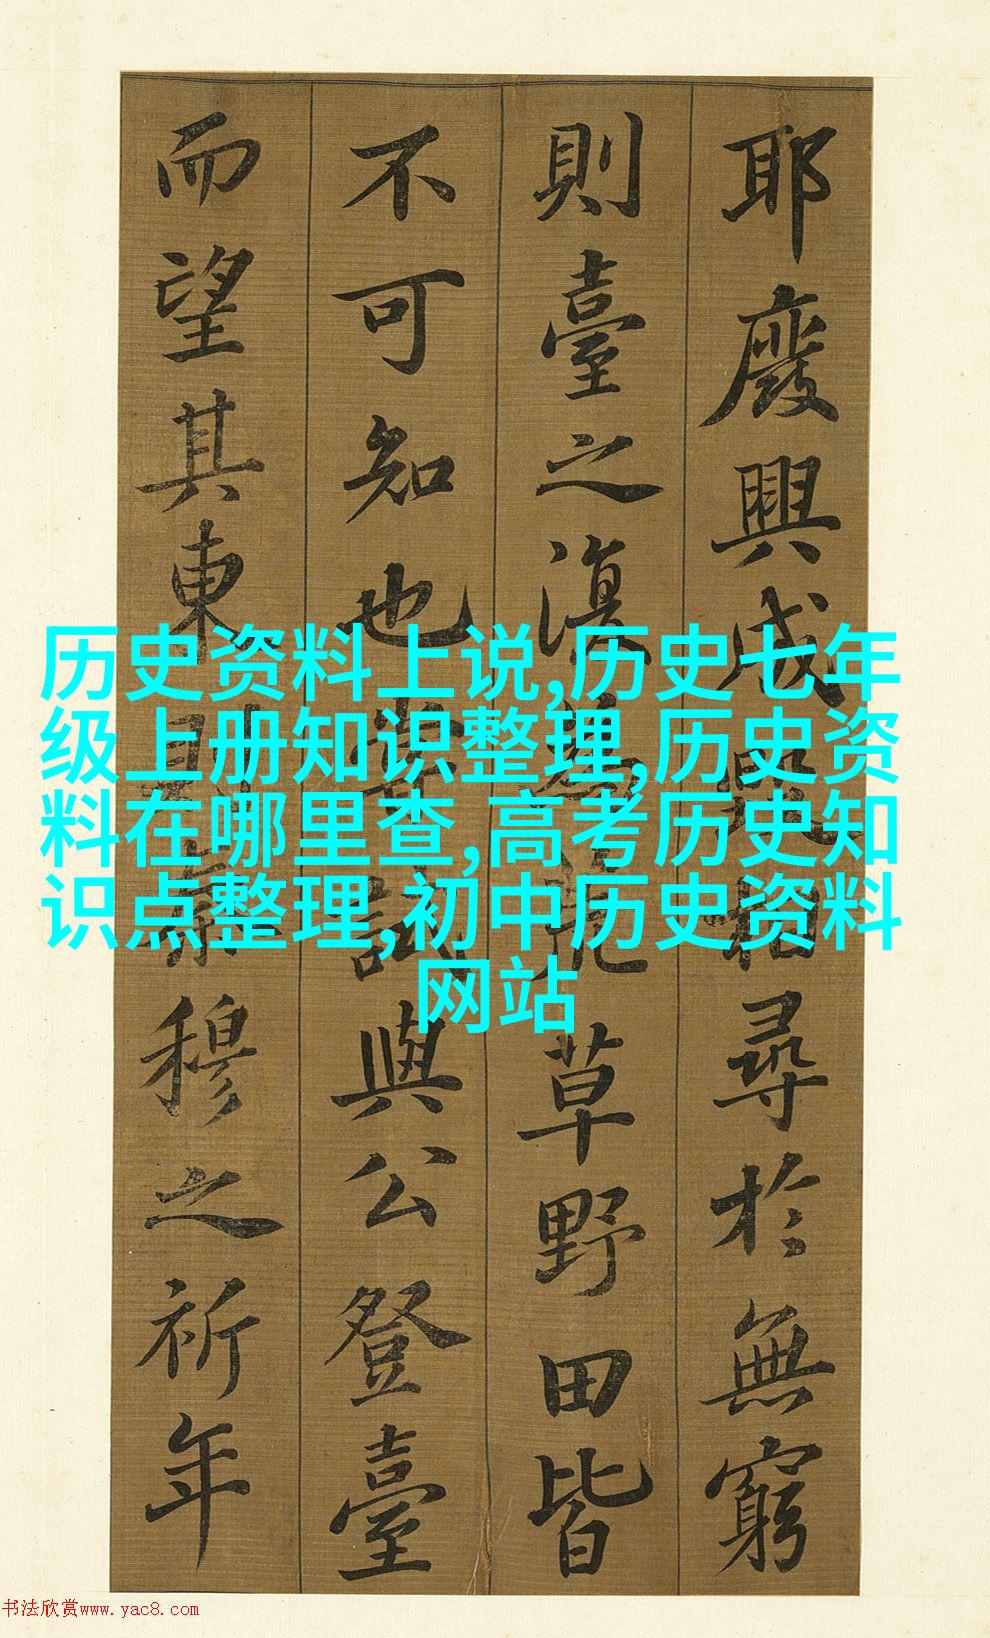 耶廢興成毀相尋於無窮
則臺之復為荒草野田皆
不可知也嘗試與公登臺
而望其東則秦穆之祈年
历史资料上说,历史七年
级上册知识整理,历史资
料在哪里查,高考历史知
识点整理,初中历史资料
网站
书法欣赏www.yac8.com